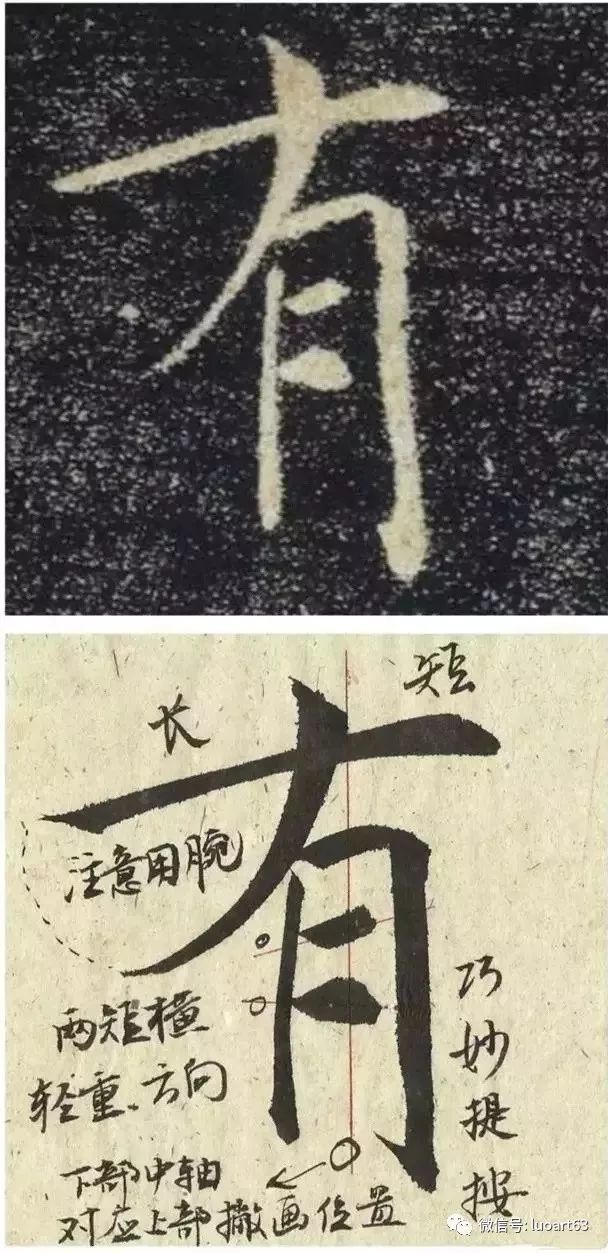 有
短
长
有
注意用腕
两短横
轻重、方向
巧妙提按
下部中轴
对应上部撇画位置
微信号: luoart63